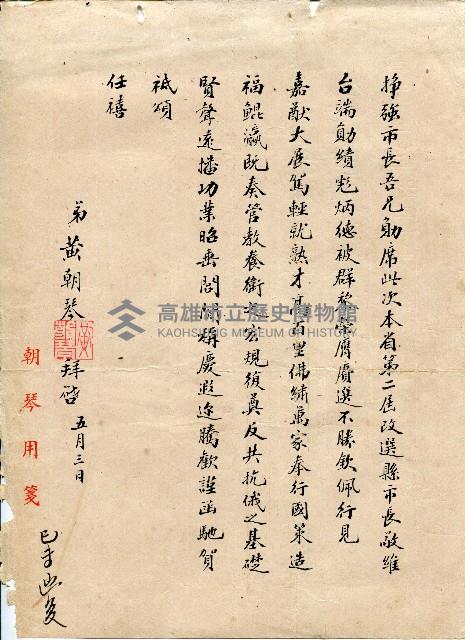 掙強市長吾兄勛席此次本省第二屆改選縣市長敬維
台端勛績彪炳德被群黎榮膺膺選不勝欽佩行見
嘉猷大展駕輕就熟才高百里佛繡萬家奉行國策造
福鯤瀛既奏管教養衛之宏規復奠反共抗俄之基礎
賢聲遠播功業昭垂閭閻騰慶遐迩騰歡謹函馳賀
祗頌
任禧
弟黃朝琴拜啓 五月三日
朝琴用箋
高雄市立歷史博物館
KAOHSIUNG MUSEUM OF HISTORY